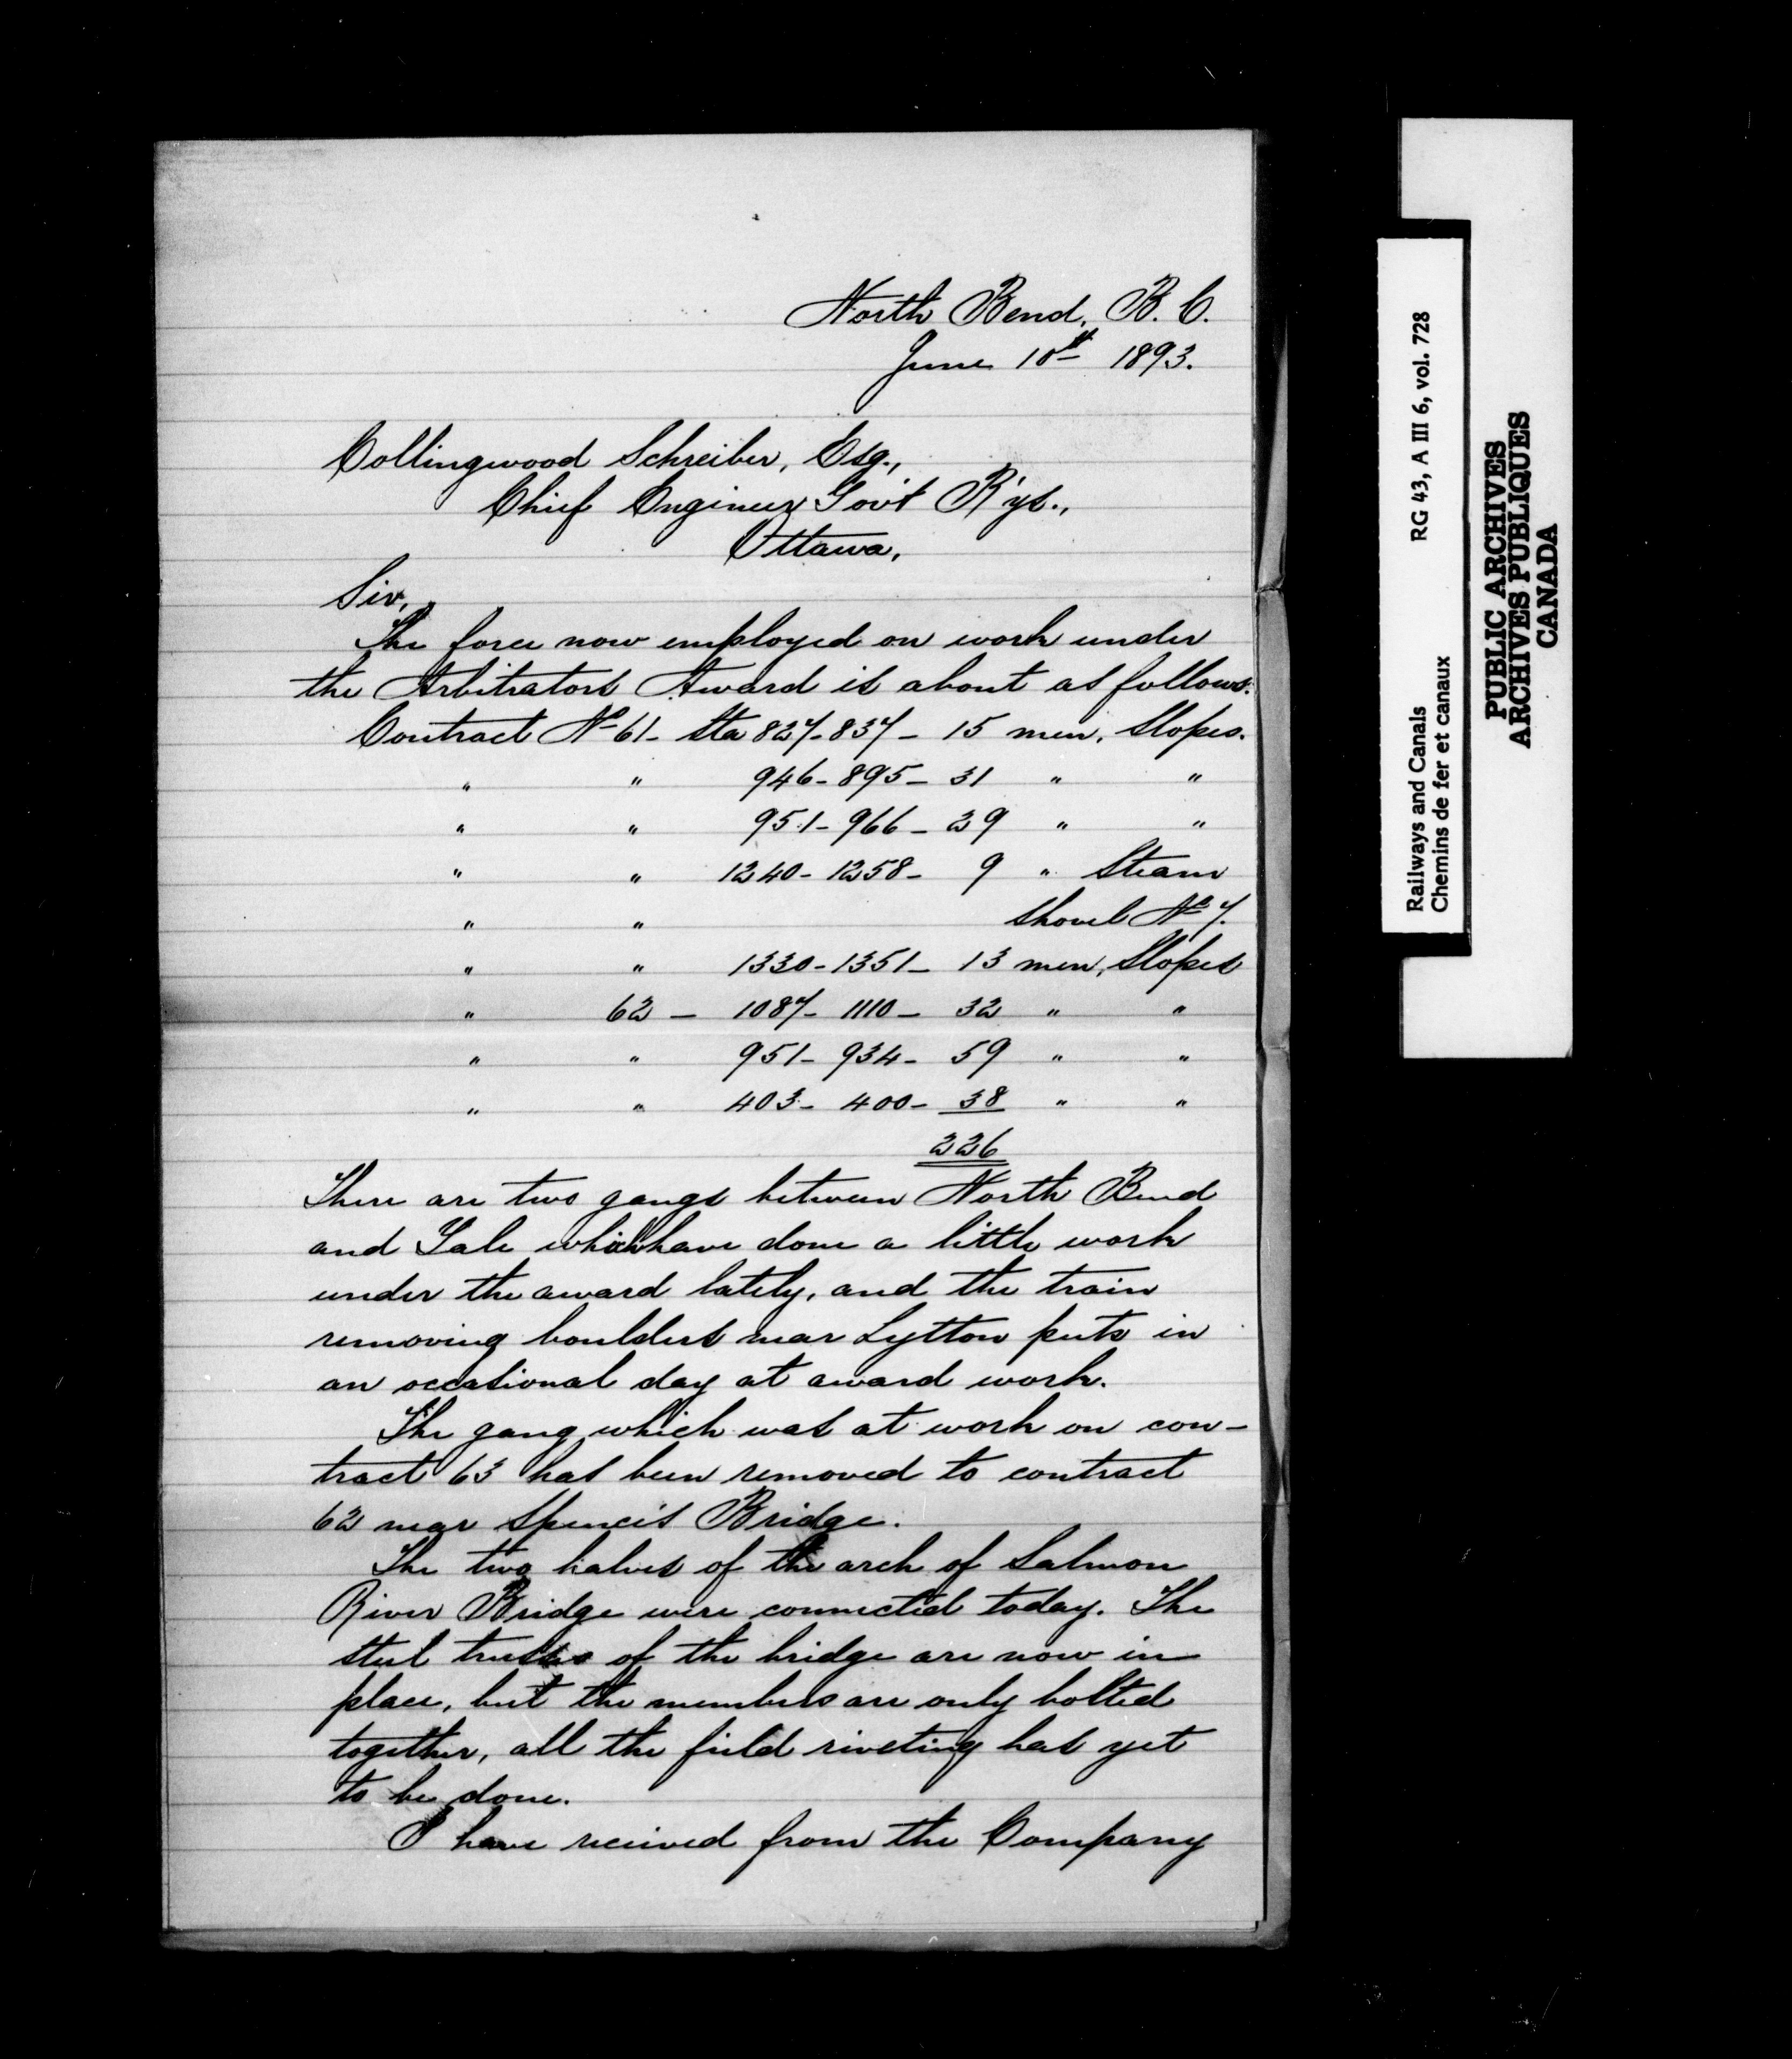 North Bend, B. C.
June 10th 1893.
Collingwood Schreiber, Esq.,
Chief Engineer Gov't R'ys.,
Ottawa,
Sir,
The force now employed on work under
the Arbitrators Award is about as follows:
Contract No 61 - Sta 827 - 837 - 15 men, Slopes.
" " 946 - 895 - 31 " "
" " 951 - 966 - 29 " "
" " 1240 - 1258 - 9 " Steam
" " Shovel No 7.
" " 1330 - 1351 - 13 men, Slopes
" 62 - 1087 - 1110 - 32 " "
" " 951 - 934 - 59 " "
" " 403 - 400 - 38 " "
226
There are two gangs between North Bend
and Yale which have done a little work
under the award lately, and the train
removing boulders near Lytton puts in
an occasional day at award work.
The gang which was at work on con-
tract 63 has been removed to contract
62 near Spences Bridge.
The two halves of the arch of Salmon
River Bridge were connected today. The
steel trusses of the bridge are now in
place, but the members are only bolted
together, all the field riveting has yet
to be done.
I have received from the Company
Railways and Canals RG 43, A III 6, vol. 728
Chemins de fer et canaux
PUBLIC ARCHIVES
ARCHIVES PUBLIQUES
CANADA